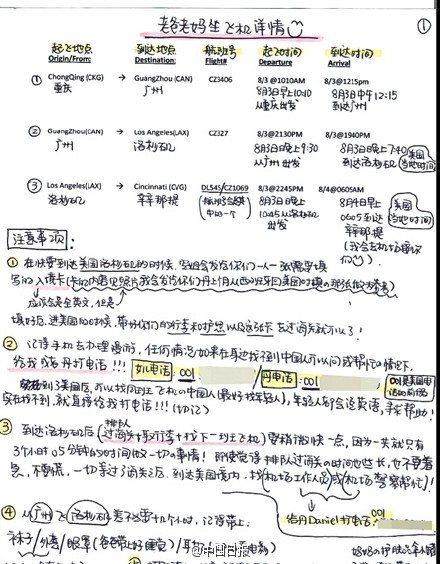 老爸老妈坐飞机详情 ①
起飞地点 到达地点 航班号 起飞时间 到达时间
Origin/From: Destination: Flight# Departure Arrival
① ChongQing (CKG) → GuangZhou (CAN) CZ3406 8/3 @1010AM 8/3@1215pm
重庆 广州 8月3日早上10:10 8月3日中午12:15
从重庆出发 到达广州
② GuangZhou(CAN) → Los Angeles(LAX) CZ327 8/3@2130PM 8/3@1940PM
广州 洛杉矶 8月3日晚上9:30 8月3日晚上7:40 美国当地时间
从广州出发 到达洛杉矶
③ Los Angeles(LAX) → Cincinnati (CVG) DL545/CZ1069 8/3@2245PM 8/4@0605AM
洛杉矶 辛辛那提 8月3日晚上 8月4日早上 美国当地时间
中的一个 10:45从洛杉矶出发 0605到达
辛辛那提
注意事项:
① 在快要到达美国洛杉矶的时候,空姐会发给你们一人一张需要填
写的入境卡
应该是全英文,但是
填好后,进美国的时候,带好你们的行李和护照以及这张卡去过海关就可以了!
② 记得手机去办理漫游,任何情况如果在身边找不到中国人可以问或帮忙的情况下,
给我或者丹打电话!!! 如电话: 001 丹电话: 001 001是美国电话的前缀
到美国后,可以找同班飞机的中国人(最好找年轻人),年轻人都会说英语,寻求帮助!
实在找不到,就直接给我打电话!!!(切记)
③ 到达洛杉矶后(过海关+取行李+找下一班飞机)要稍微快一点,因为一共就只有
排队
3个小时05分钟的时间做一切的事情!即使觉得排队过海关的时间也些长,也不要着
急,不要慌,一切等过了海关之后,到达美国境内,找(机场工作人员)或(机场警察帮忙)!
给丹Daniel打电话: 001
④ 从广州飞洛杉矶差不多要十几个小时,记得带上:
袜子/外套/眼罩(爸爸带上好睡觉)/耳
@中国日报